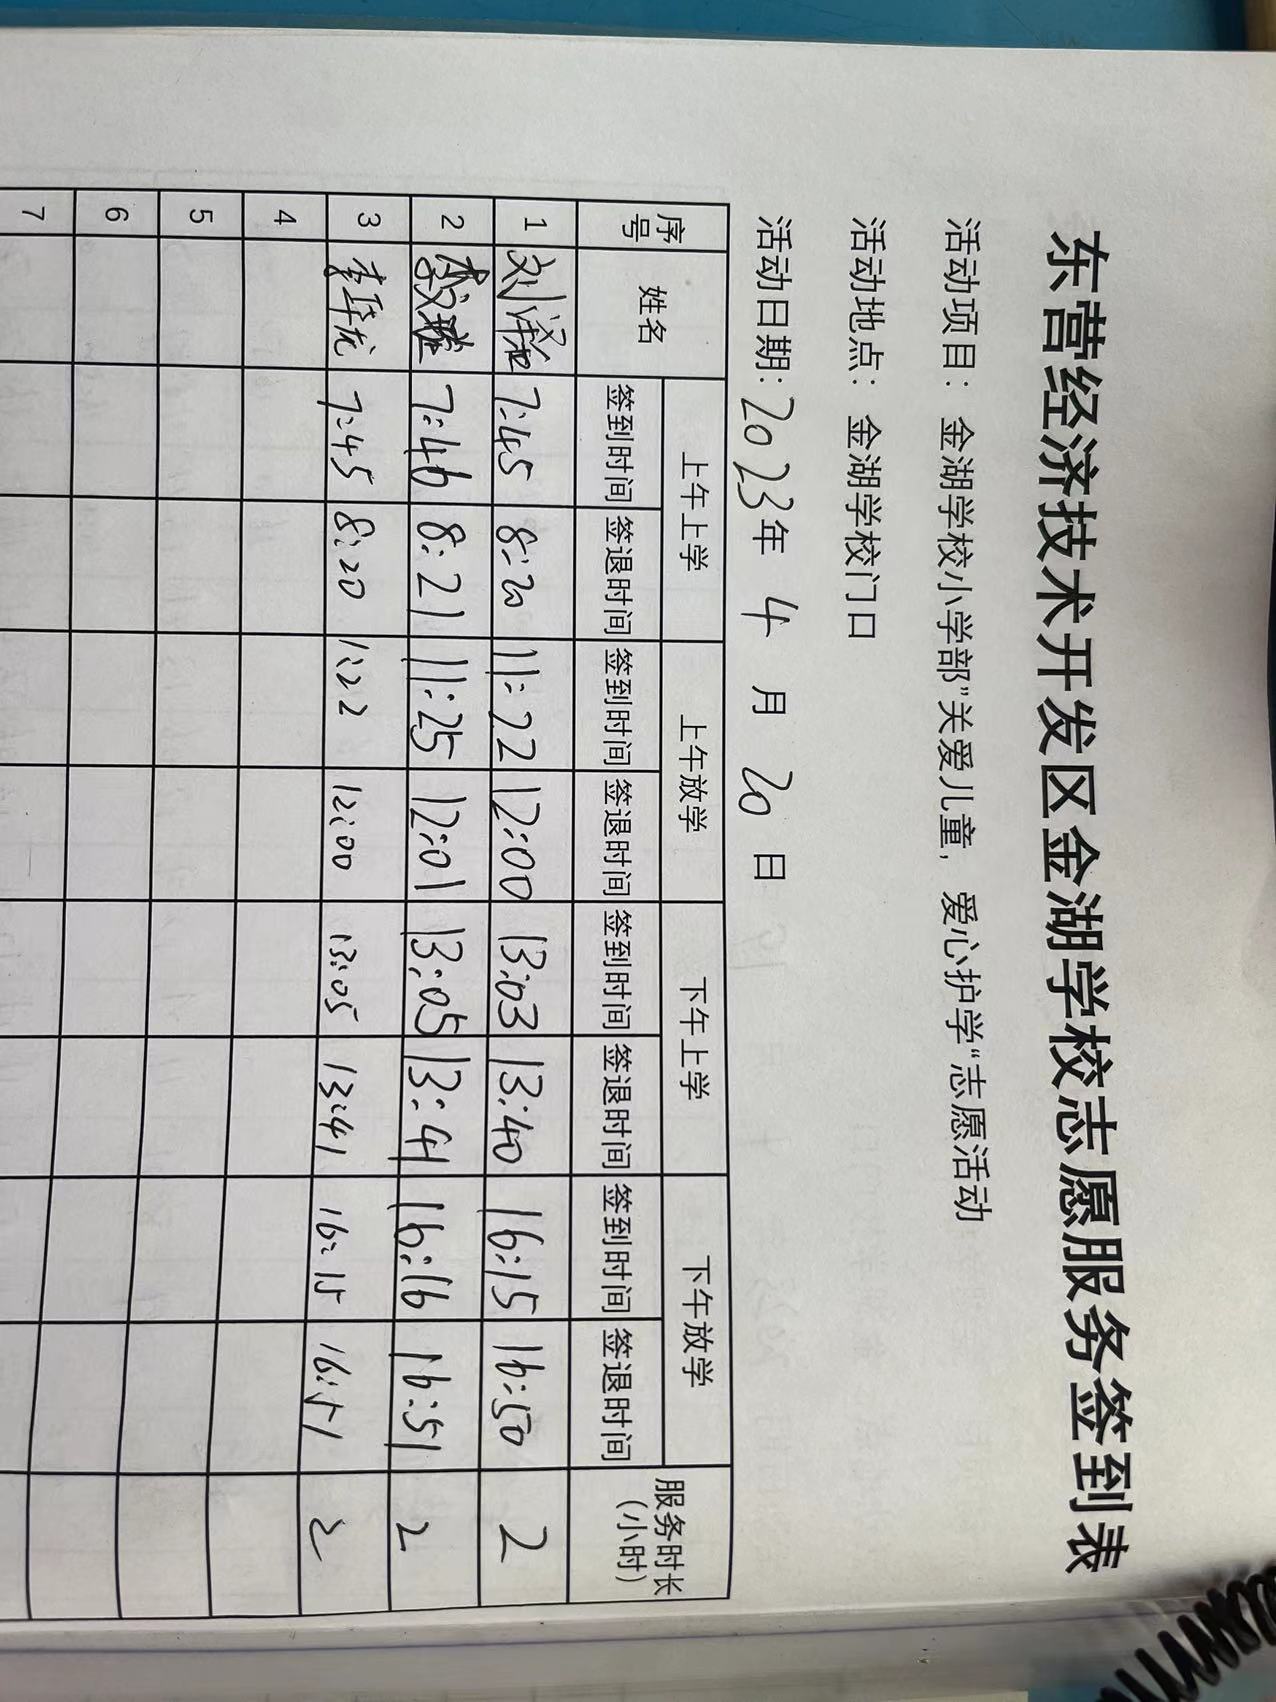 东营经济技术开发区金湖学校志愿服务签到表
活动项目：金湖学校小学部”关爱儿童，爱心护学“志愿活动
活动地点：金湖学校门口
活动日期：2023年 4 月 20 日
序号 姓名 上午上学 上午放学 下午上学 下午放学 服务时长（小时）
签到时间 签退时间 签到时间 签退时间 签到时间 签退时间 签到时间 签退时间
1 刘 7:45 8:20 11:22 12:00 13:03 13:40 16:15 16:50 2
2 7:46 8:21 11:25 12:01 13:05 13:41 16:16 16:51 2
3 李 7:45 8:20 11:22 12:00 13:05 13:41 16:15 16:51 2
4
5
6
7